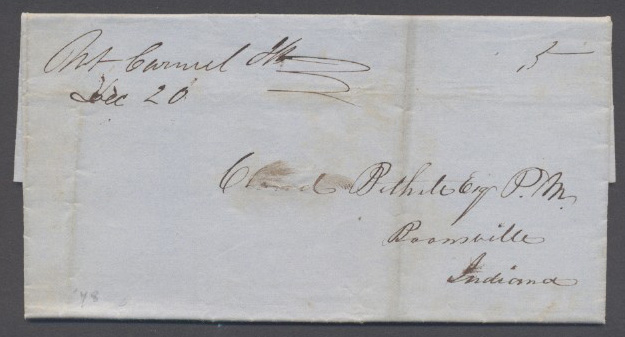 Mt Carmel Ills
Dec 20
5
Pethite Esq P.M.
Boonsville
Indiana
'48